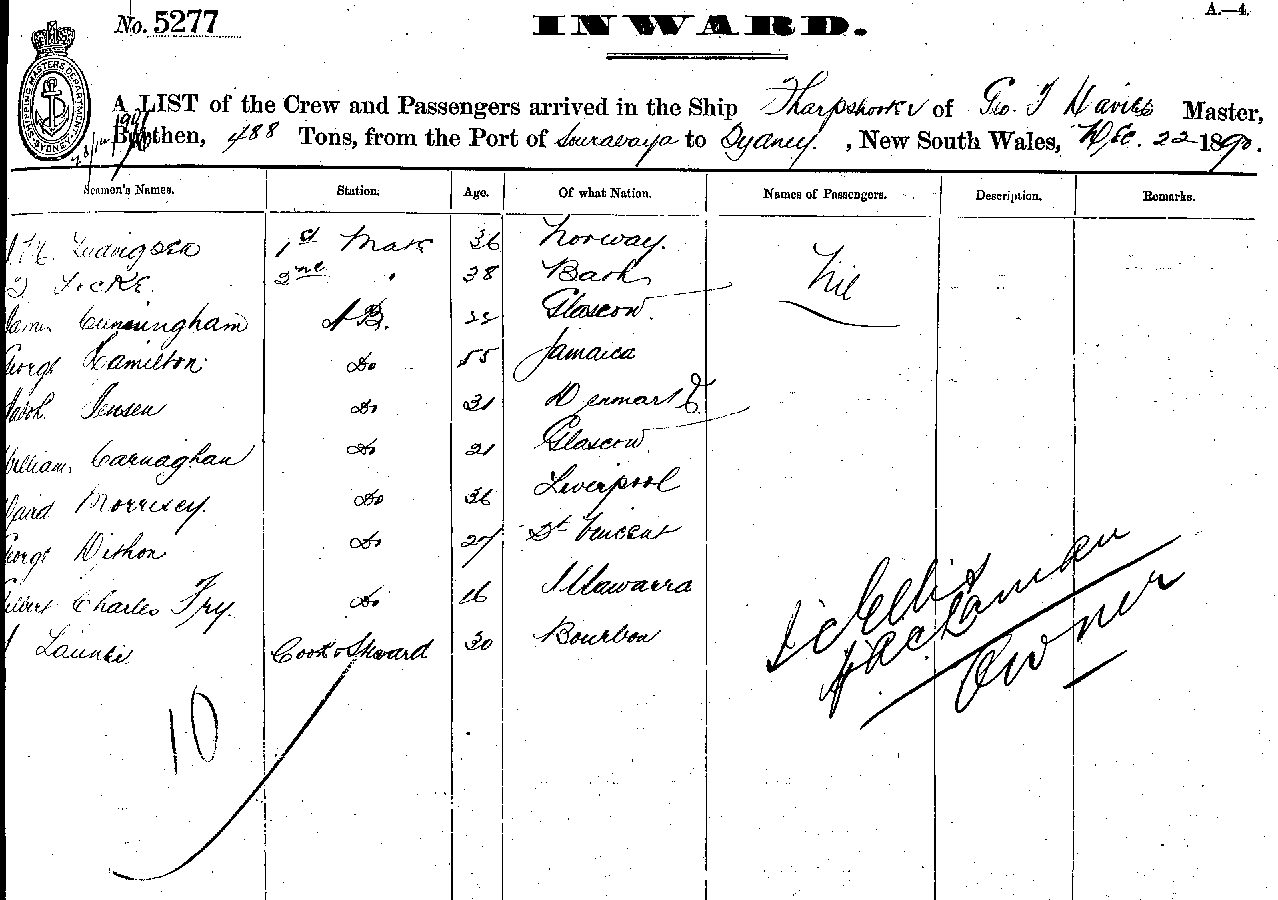 No. 5277
INWARD.
A.—4.
SHIPPING MASTERS DEPARTMENT SYDNEY
A LIST of the Crew and Passengers arrived in the Ship Sharpshooter of Geo. T Davies Master,
Burthen, 488 Tons, from the Port of Souravaya to Sydney. , New South Wales, Dec. 22 1890.
Seamen's Names. Station. Age. Of what Nation. Names of Passengers. Description. Remarks.
Ludvigsen 1st Mate 36 Norway. Nil
Locke 2nd " 38 Bath
James Cunningham A B. Glascow.
George Hamilton Do 55 Jamaica
Jacob Jensen Do 31 Denmark
William Carnaghan Do 21 Glascow
David Morrisey. Do 36 Liverpool
George Dithon Do 27 St Vincent
Gilbert Charles Fry. Do 16 Illawarra
Cook & Steward 30 Bourbon
10
Owner